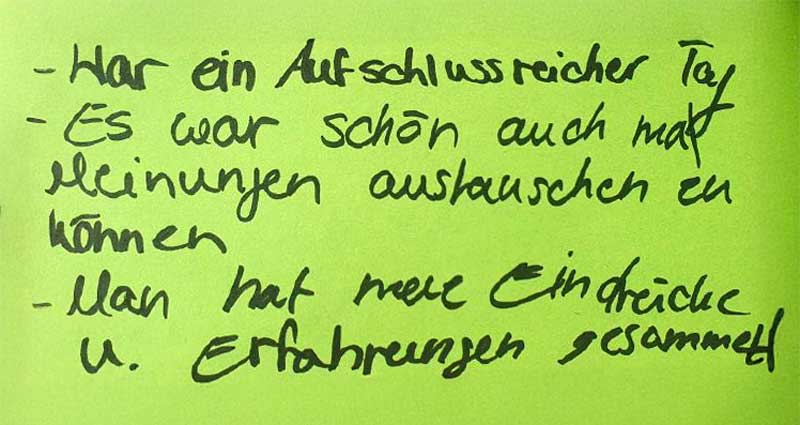 - War ein Aufschlussreicher Tag
- Es war schön auch mal
Meinungen austauschen zu
können
- Man hat neue Eindrücke
u. Erfahrungen gesammelt